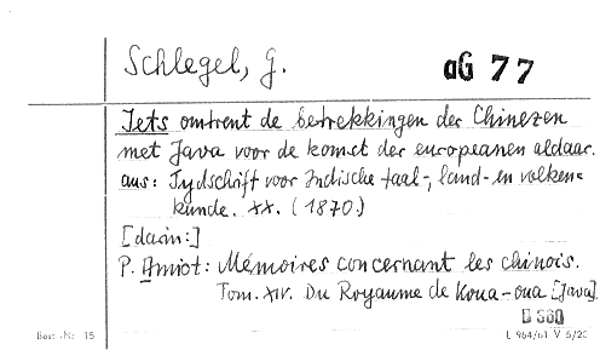 Schlegel, G.
aG 77
Iets omtrent de betrekkingen der Chinezen
met Java voor de komst der europeanen aldaar.
aus: Tydschrift voor Indische taal-, land- en volken=
kunde. XX. (1870.)
[darin:]
P. Amiot: Mémoires concernant les chinois.
Tom. XIV. Du Royaume de Koua-oua [Java].
Best.-Nr. 15
L 964/61 V 5/20